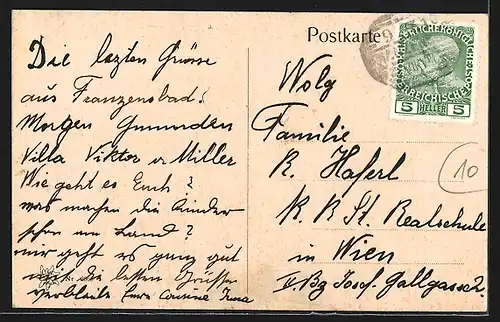 Postkarte
Die lezten Grüsse
aus Franzensbad!
Morgen Gmunden
Villa Viktor v. Miller
Wie geht es Euch?
was machen die Kinder
schon am Land?
mir geht es ganz gut
die besten Grüsse
verbleibe Eure Cousine Irma
Wolg
Familie
R. Haferl
K. K. St. Realschule
in Wien
II. Bz Josef Gallgasse 2.
5 HELLER 5
10